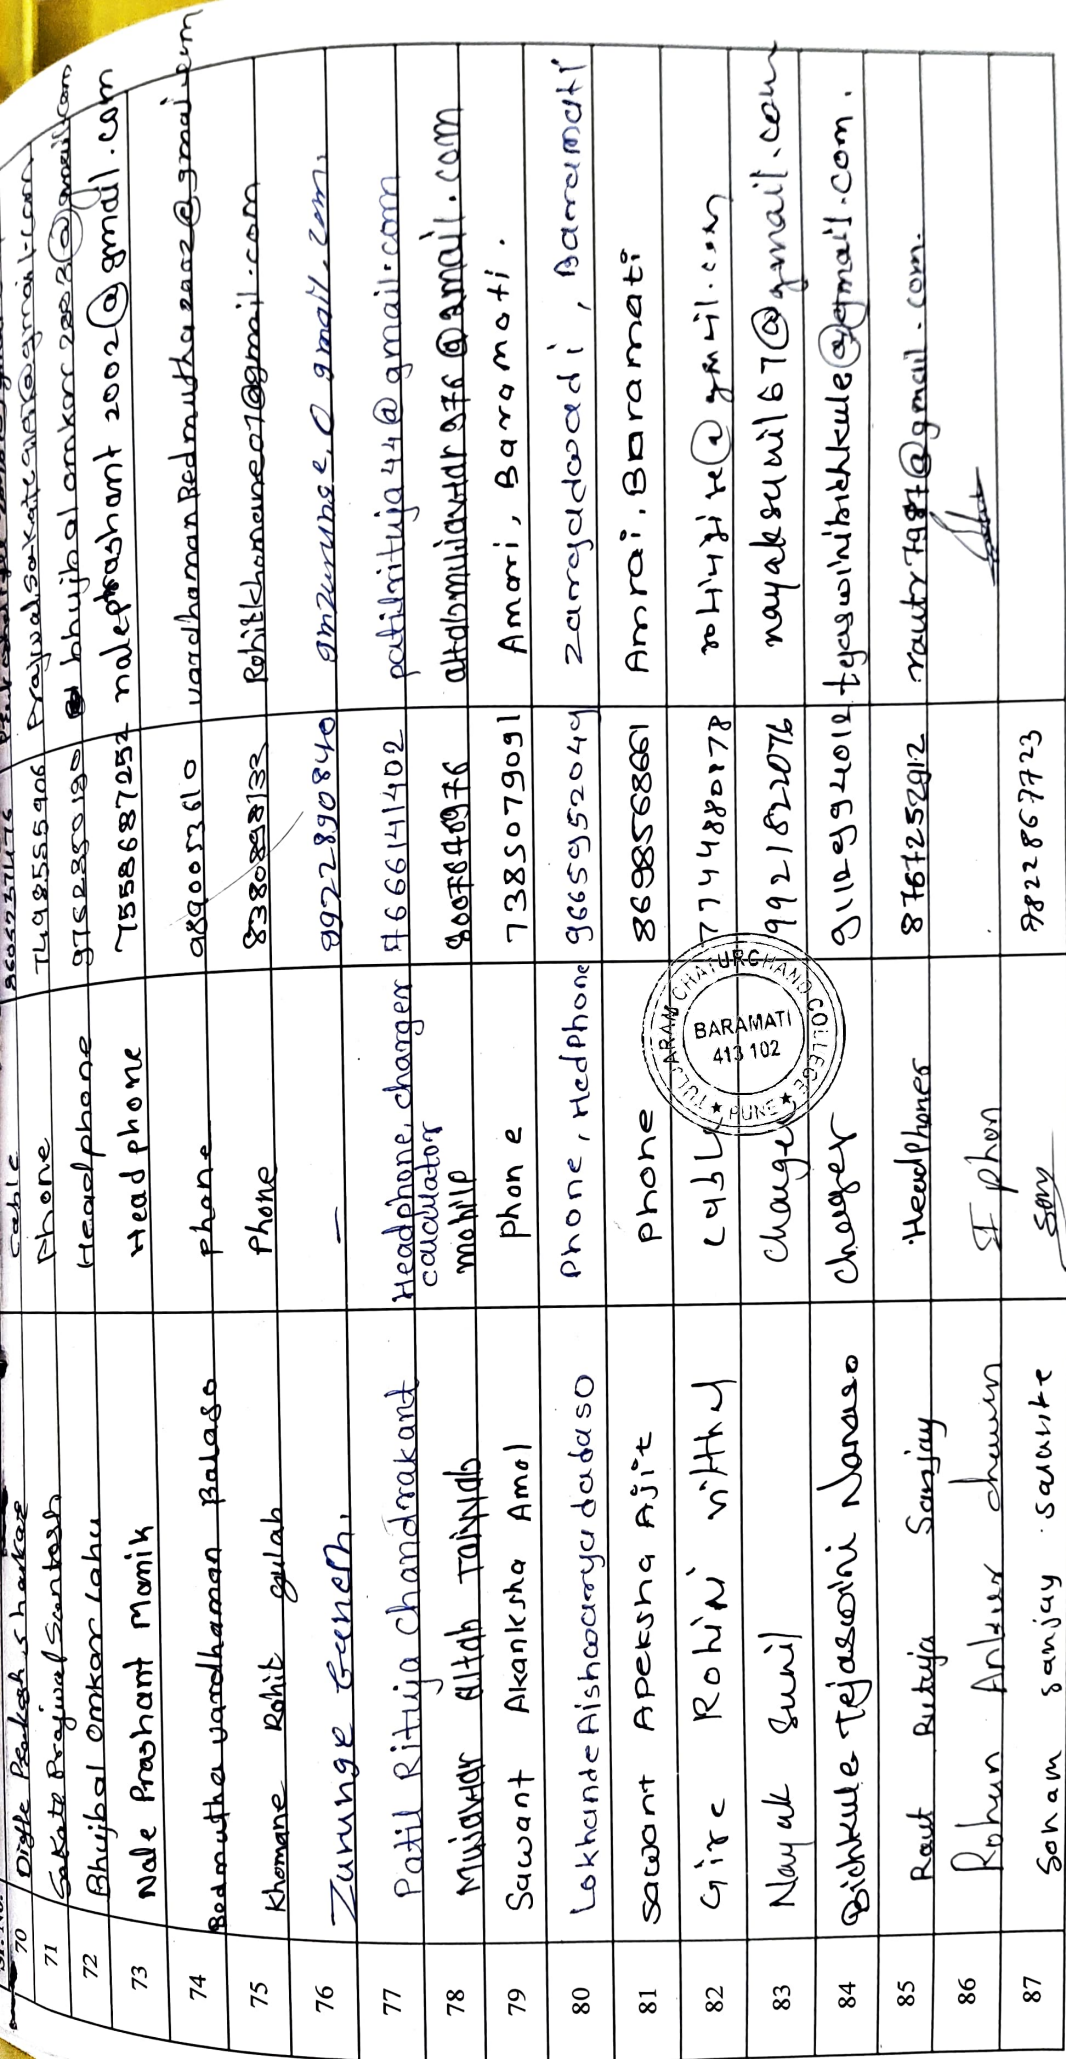 70 Digle Prakash shankar cable
71 Sakate Prajwal Santosh phone 7498555906
72 Bhujbal Omkar Lahu Headphone 9762850190 bhujbal omkar 2003@gmail.com
73 Nale Prashant Manik Head phone 7558687252 naleprashant 2002@gmail.com
74 Bedmutha vardhaman Balaso phone 9890053610 vardhamanBedmutha2002@gmail.com
75 Khomane Rohit gulab Phone 8380898132 Rohitkhomane07@gmail.com
76 Zurunge Ganesh. — 9922890840
77 Patil Rituja Chandrakant Headphone, charger 7666141402 patilrituja44@gmail.com
calculator
78 Mujawar Altab Taiyyab mobile
79 Sawant Akanksha Amol phone 7385079091 Amrai, Baramati.
80 Lokhande Aishwarya dadaso Phone, HedPhone 9665952049 zargadwadi, Baramati
81 Sawant APEKSHA Ajit phone 8698568661 Amrai, Baramati
82 Gire Rohini vitthal cable 7744880178
83 Nayak Sunil Charger 9921822076 nayaksunil67@gmail.com
84 Bichkule Tejaswini Nanaso Charger tejaswinibichkule@gmail.com.
85 Raut Rutuja Sanjay Headphones 8767252912 rautr7987@gmail.com.
86 Rohun Ankur phon
87 Sonam sanjay salunke 9822867723
TULJARAM CHATURCHAND COLLEGE
BARAMATI
413 102
★ PUNE ★